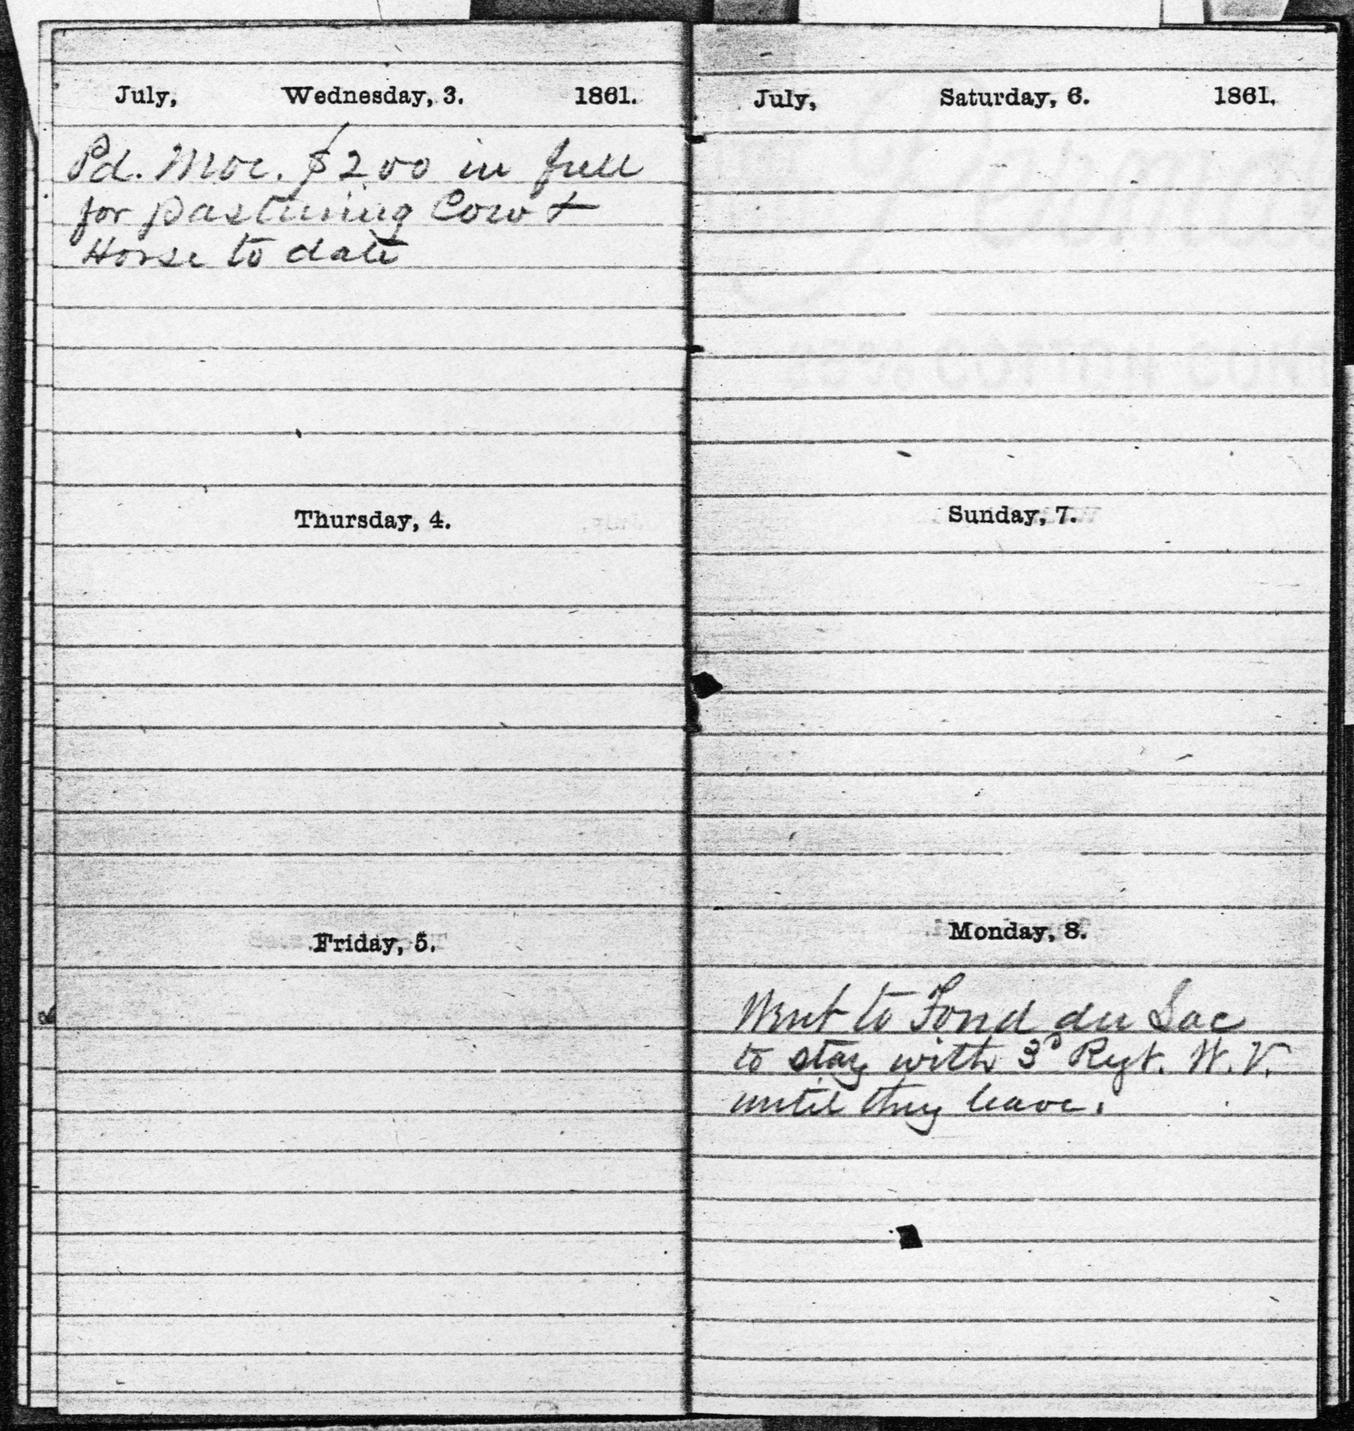 July, Wednesday, 3. 1861.
Pd. Moc. $2 00 in full
for pasturing Cow &
Horse to date
Thursday, 4.
Friday, 5.
July, Saturday, 6. 1861.
Sunday, 7.
Monday, 8.
Went to Fond du Lac
to stay with 3d Regt. W. V.
until they leave.